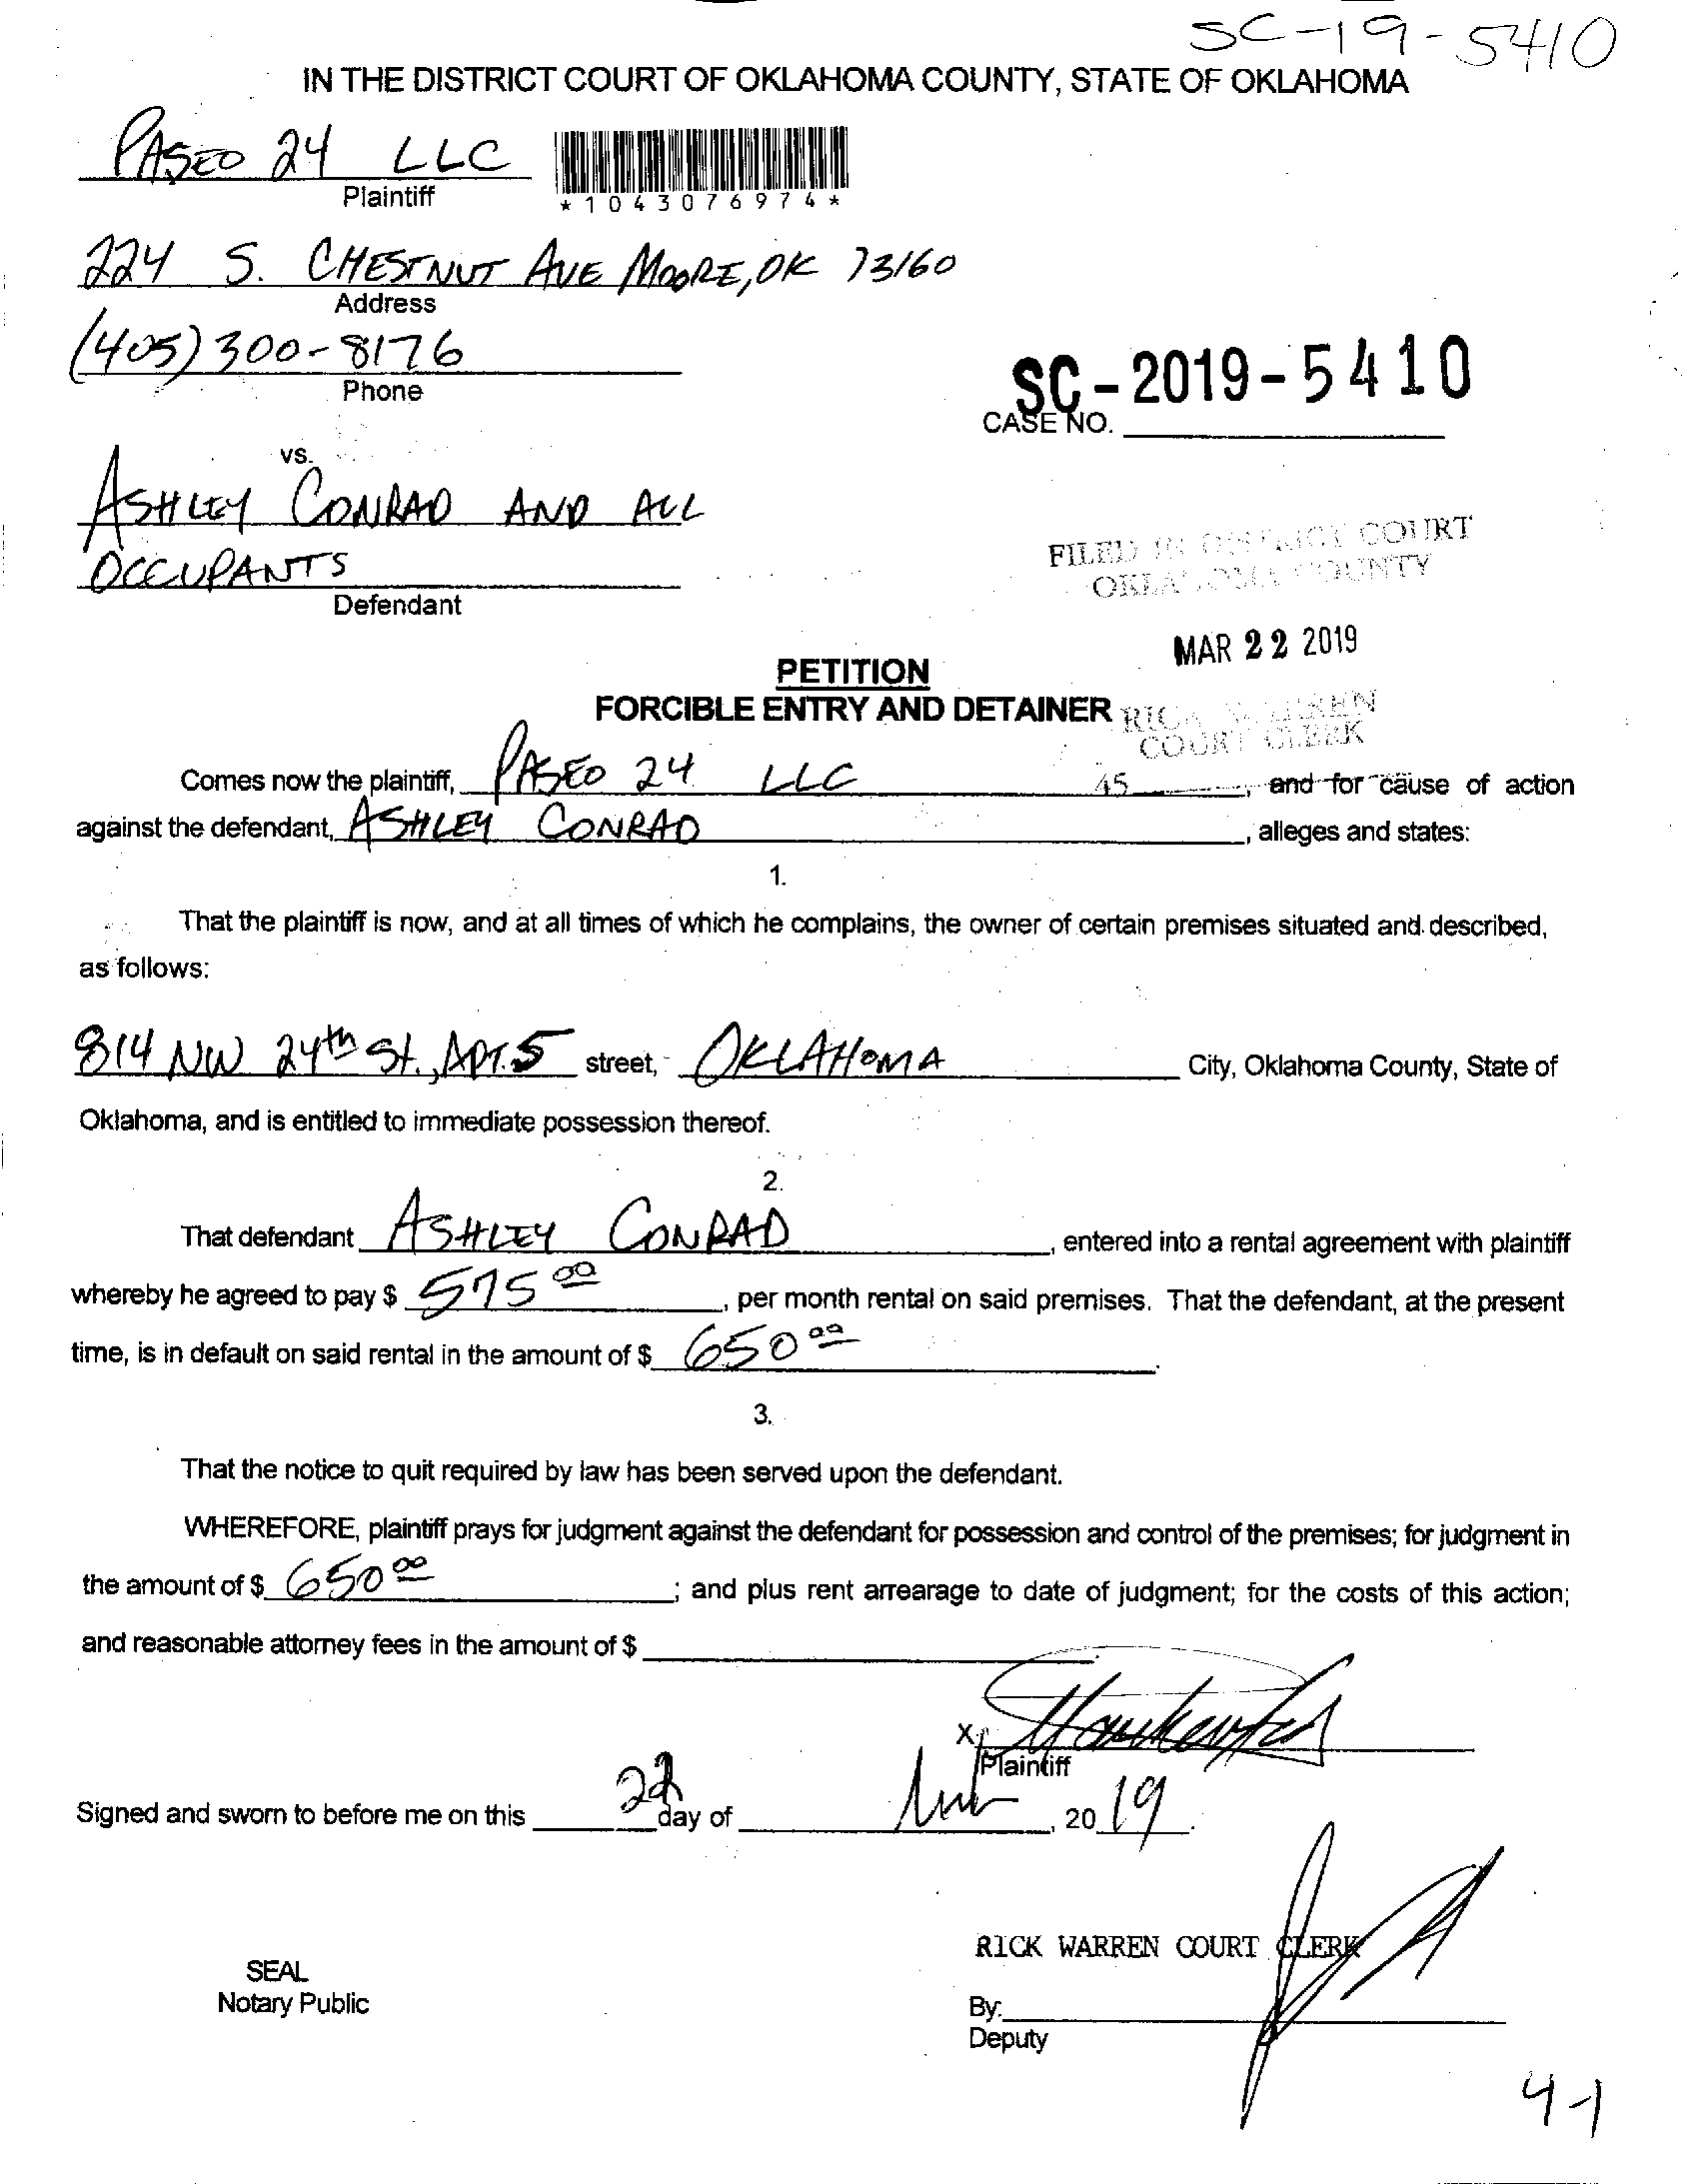 SC-19-5410
IN THE DISTRICT COURT OF OKLAHOMA COUNTY, STATE OF OKLAHOMA
PASEO 24 LLC
Plaintiff
*1043076974*
224 S. CHESTNUT AVE MOORE, OK 73160
Address
(405) 300-8176
Phone
SC-2019-5410
CASE NO.
vs.
ASHLEY CONRAD AND ALL
OCCUPANTS
Defendant
FILED IN DISTRICT COURT
OKLAHOMA COUNTY
MAR 22 2019
PETITION
FORCIBLE ENTRY AND DETAINER
RICK WARREN
COURT CLERK
45
Comes now the plaintiff, PASEO 24 LLC, and for cause of action
against the defendant, ASHLEY CONRAD, alleges and states:
1.
That the plaintiff is now, and at all times of which he complains, the owner of certain premises situated and described,
as follows:
814 NW 24th St., APT. 5 street, OKLAHOMA City, Oklahoma County, State of
Oklahoma, and is entitled to immediate possession thereof.
2.
That defendant ASHLEY CONRAD, entered into a rental agreement with plaintiff
whereby he agreed to pay $ 575 00, per month rental on said premises. That the defendant, at the present
time, is in default on said rental in the amount of $ 650 00.
3.
That the notice to quit required by law has been served upon the defendant.
WHEREFORE, plaintiff prays for judgment against the defendant for possession and control of the premises; for judgment in
the amount of $ 650 00; and plus rent arrearage to date of judgment; for the costs of this action;
and reasonable attorney fees in the amount of $
X
Plaintiff
Signed and sworn to before me on this 22 day of , 2019.
RICK WARREN COURT CLERK
SEAL
Notary Public
By:
Deputy
4-1